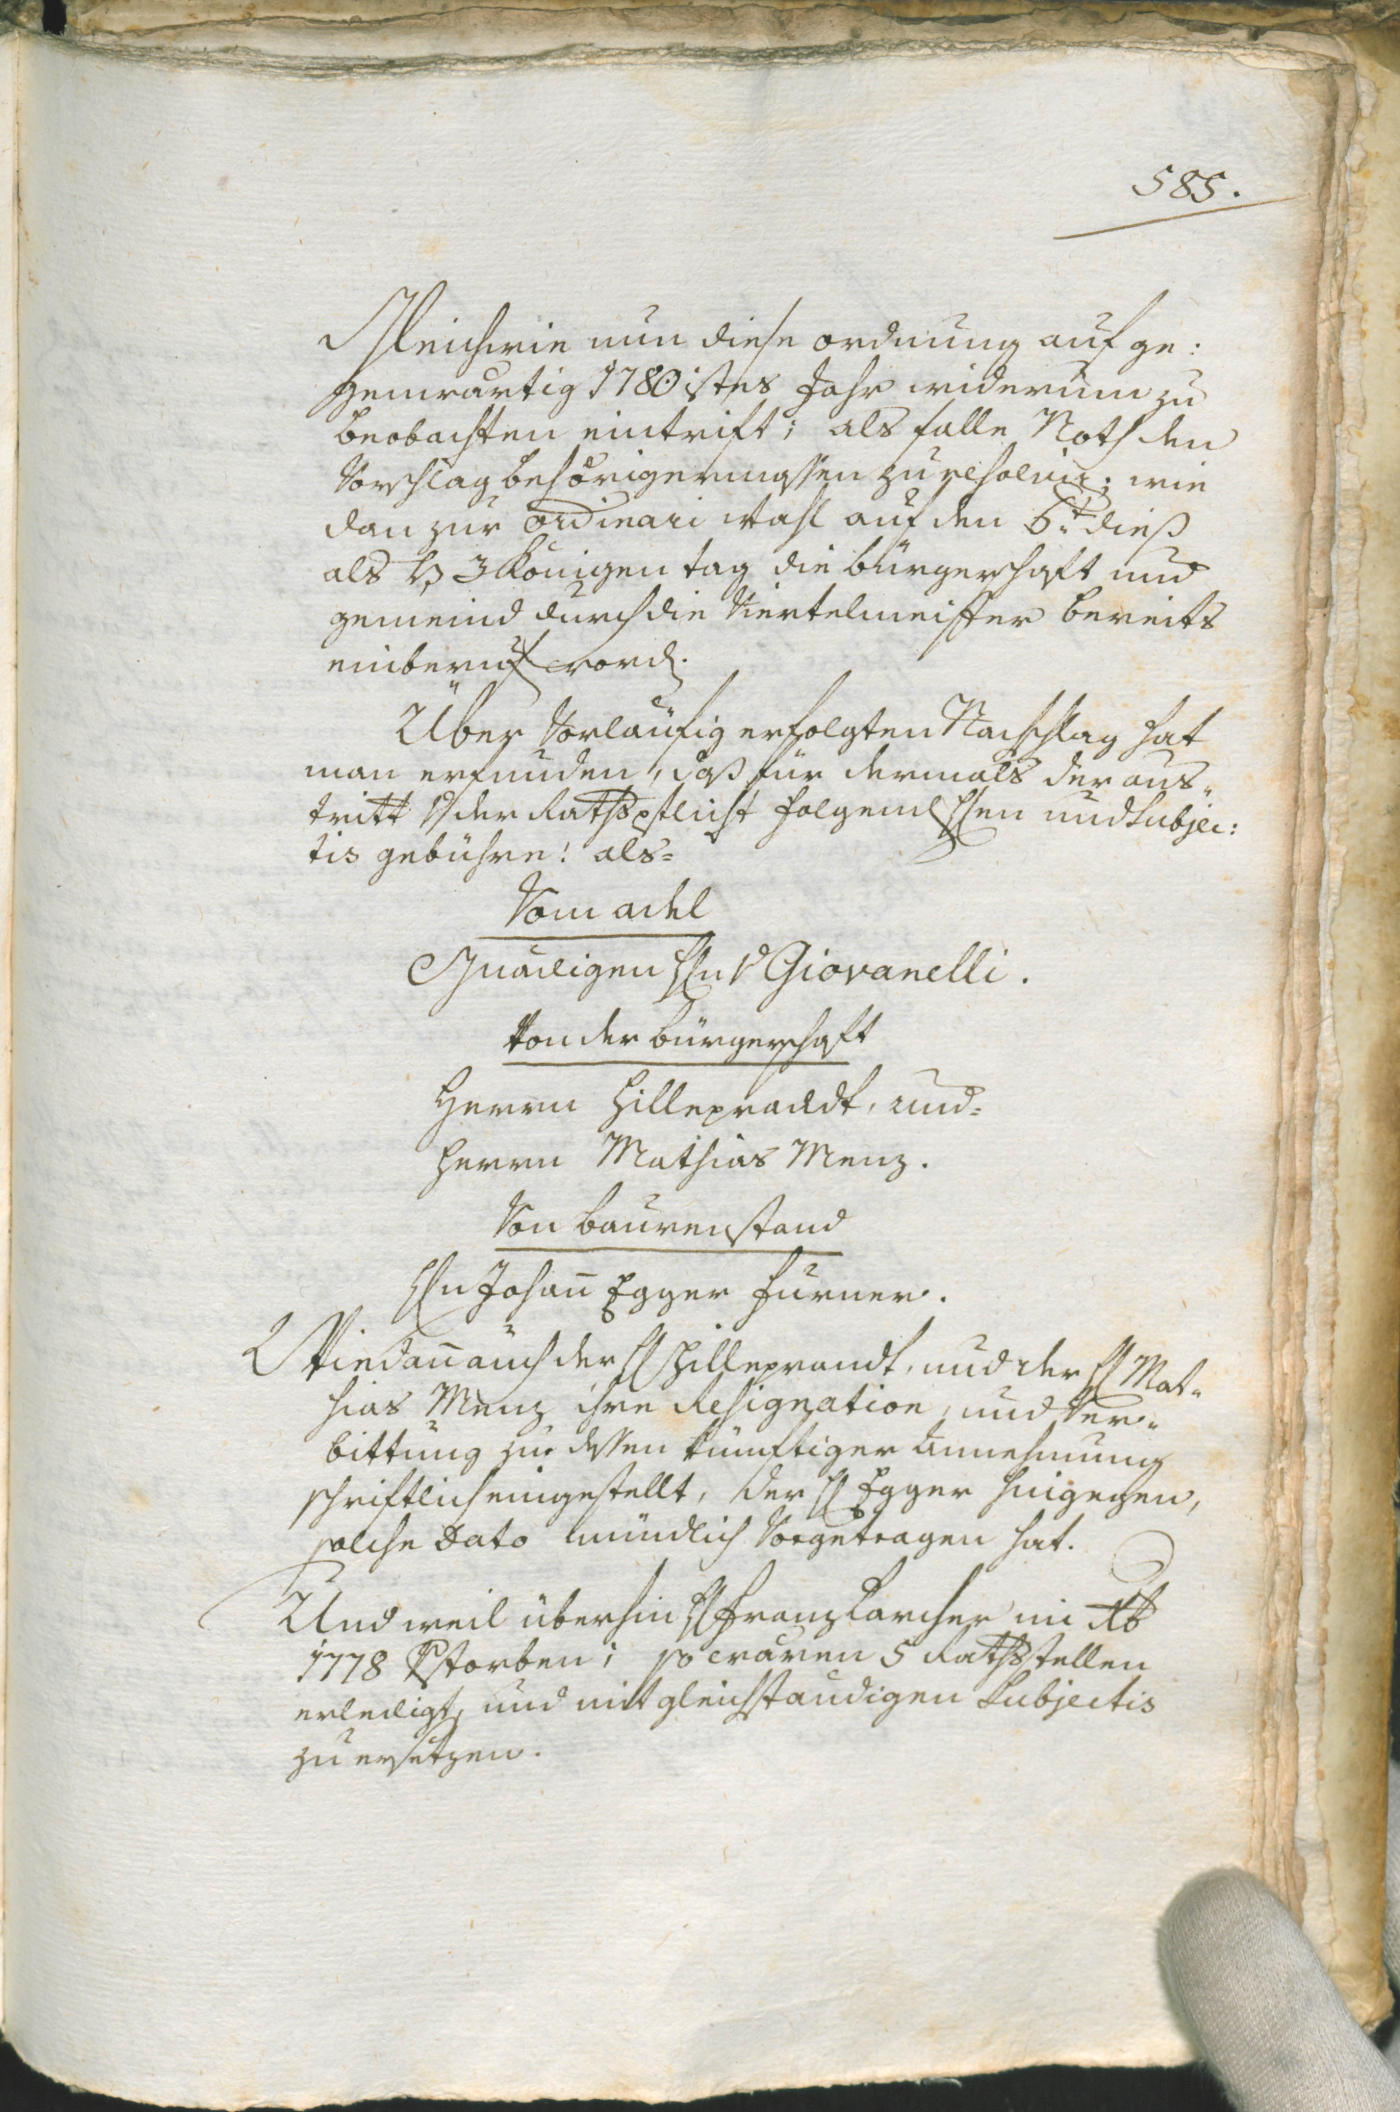 585.
Gleichwie nun diese ordnung auf ge:
genwärtig 1780istes Jahr widerum zu
beobachten eintrift; als falle Noth den
Vorschlag behörigermassen zu resolvir; wie
dan zur ordinari Wahl auf den 6.t diess
als H 3 Königen tag die bürgerschaft und
gemeind durch die Viertelmeister bereits
einberuf word.
Über Vorläufig erfolgten Nachschlag hat
man erfunden, dass für dermals der aus-
tritt v der Rathspflicht folgend Hen und Subjec:
tis gebühre: als=
Vom adel
Gnädigen Hn v Giovanelli.
Von der bürgerschaft
Herrn Hilleprandt, und=
Herrn Mathias Menz.
Von baurenstand
Hn Johann Egger Furner.
Wie dann auch der H Hilleprandt, und der H Mat-
hias Menz ihre Resignation, und Ver-
bittung zu dessen künftiger Annehmung
schriftlich eingestellt, der H Egger hingegen,
solche Dato mündlich Vorgetragen hat.
Und weil überhin H Franz Larcher in
1778 Vstorben; so wären 5 Rathsstellen
erledigt, und mit gleichstandigen Subjectis
zu ersetzen.